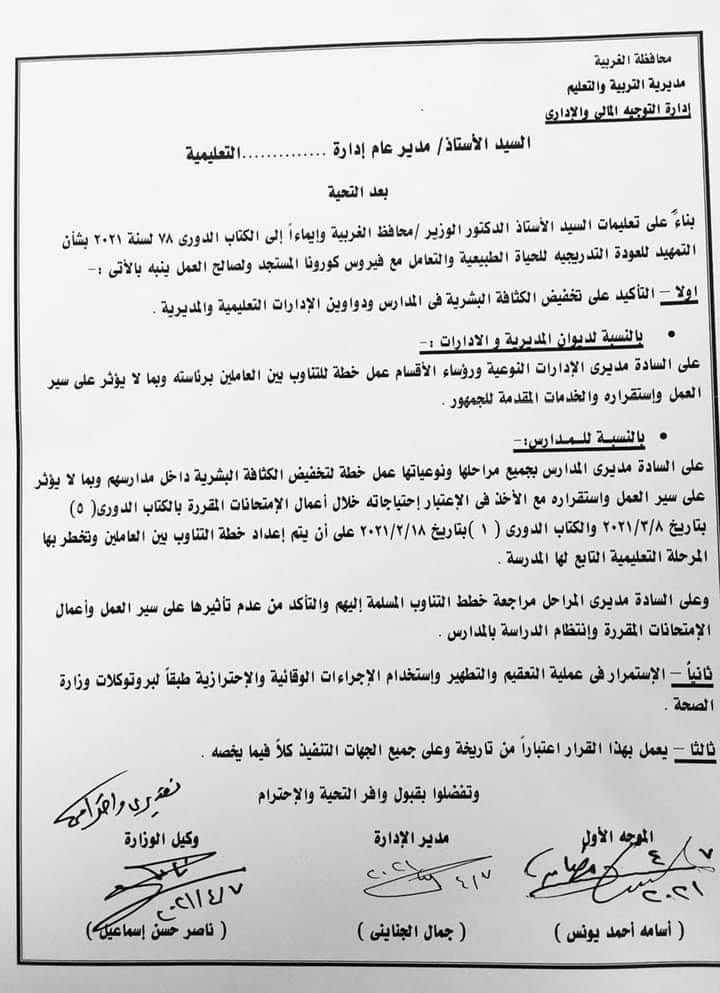 محافظة الغربية
مديرية التربية والتعليم
إدارة التوجيه المالى والإدارى
السيد الأستاذ/ مدير عام إدارة ..............التعليمية
بعد التحية
بناءً على تعليمات السيد الأستاذ الدكتور الوزير /محافظ الغربية وإيماءاً إلى الكتاب الدورى ٧٨ لسنة ٢٠٢١ بشأن
التمهيد للعودة التدريجيه للحياة الطبيعية والتعامل مع فيروس كورونا المستجد ولصالح العمل ينبه بالأتى :-
اولا – التأكيد على تخفيض الكثافة البشرية فى المدارس ودواوين الإدارات التعليمية والمديرية .
• بالنسبة لديوان المديرية و الادارات :-
على السادة مديرى الإدارات النوعية ورؤساء الأقسام عمل خطة للتناوب بين العاملين برئاسته وبما لا يؤثر على سير
العمل وإستقراره والخدمات المقدمة للجمهور .
• بالنسبة للـمـدارس:-
على السادة مديرى المدارس بجميع مراحلها ونوعياتها عمل خطة لتخفيض الكثافة البشرية داخل مدارسهم وبما لا يؤثر
على سير العمل واستقراره مع الأخذ فى الإعتبار إحتياجاته خلال أعمال الإمتحانات المقررة بالكتاب الدورى( ٥ )
بتاريخ ٢٠٢١/٣/٨ والكتاب الدورى ( ١ )بتاريخ ٢٠٢١/٢/١٨ على أن يتم إعداد خطة التناوب بين العاملين وتخطر بها
المرحلة التعليمية التابع لها المدرسة .
وعلى السادة مديرى المراحل مراجعة خطط التناوب المسلمة إليهم والتأكد من عدم تأثيرها على سير العمل وأعمال
الإمتحانات المقررة وإنتظام الدراسة بالمدارس .
ثانياً – الإستمرار فى عملية التعقيم والتطهير وإستخدام الإجراءات الوقائية والإحترازية طبقاً لبروتوكلات وزارة
الصحة .
ثالثا – يعمل بهذا القرار اعتباراً من تاريخة وعلى جميع الجهات التنفيذ كلاً فيما يخصه .
وتفضلوا بقبول وافر التحية والإحترام
الموجه الأول مدير الإدارة وكيل الوزارة
٤/٧ ٢٠٢١
٤/٧ ٢٠٢١
٢٠٢١/٤/٧
( أسامه أحمد يونس ) ( جمال الجناينى ) ( ناصر حسن إسماعيل )